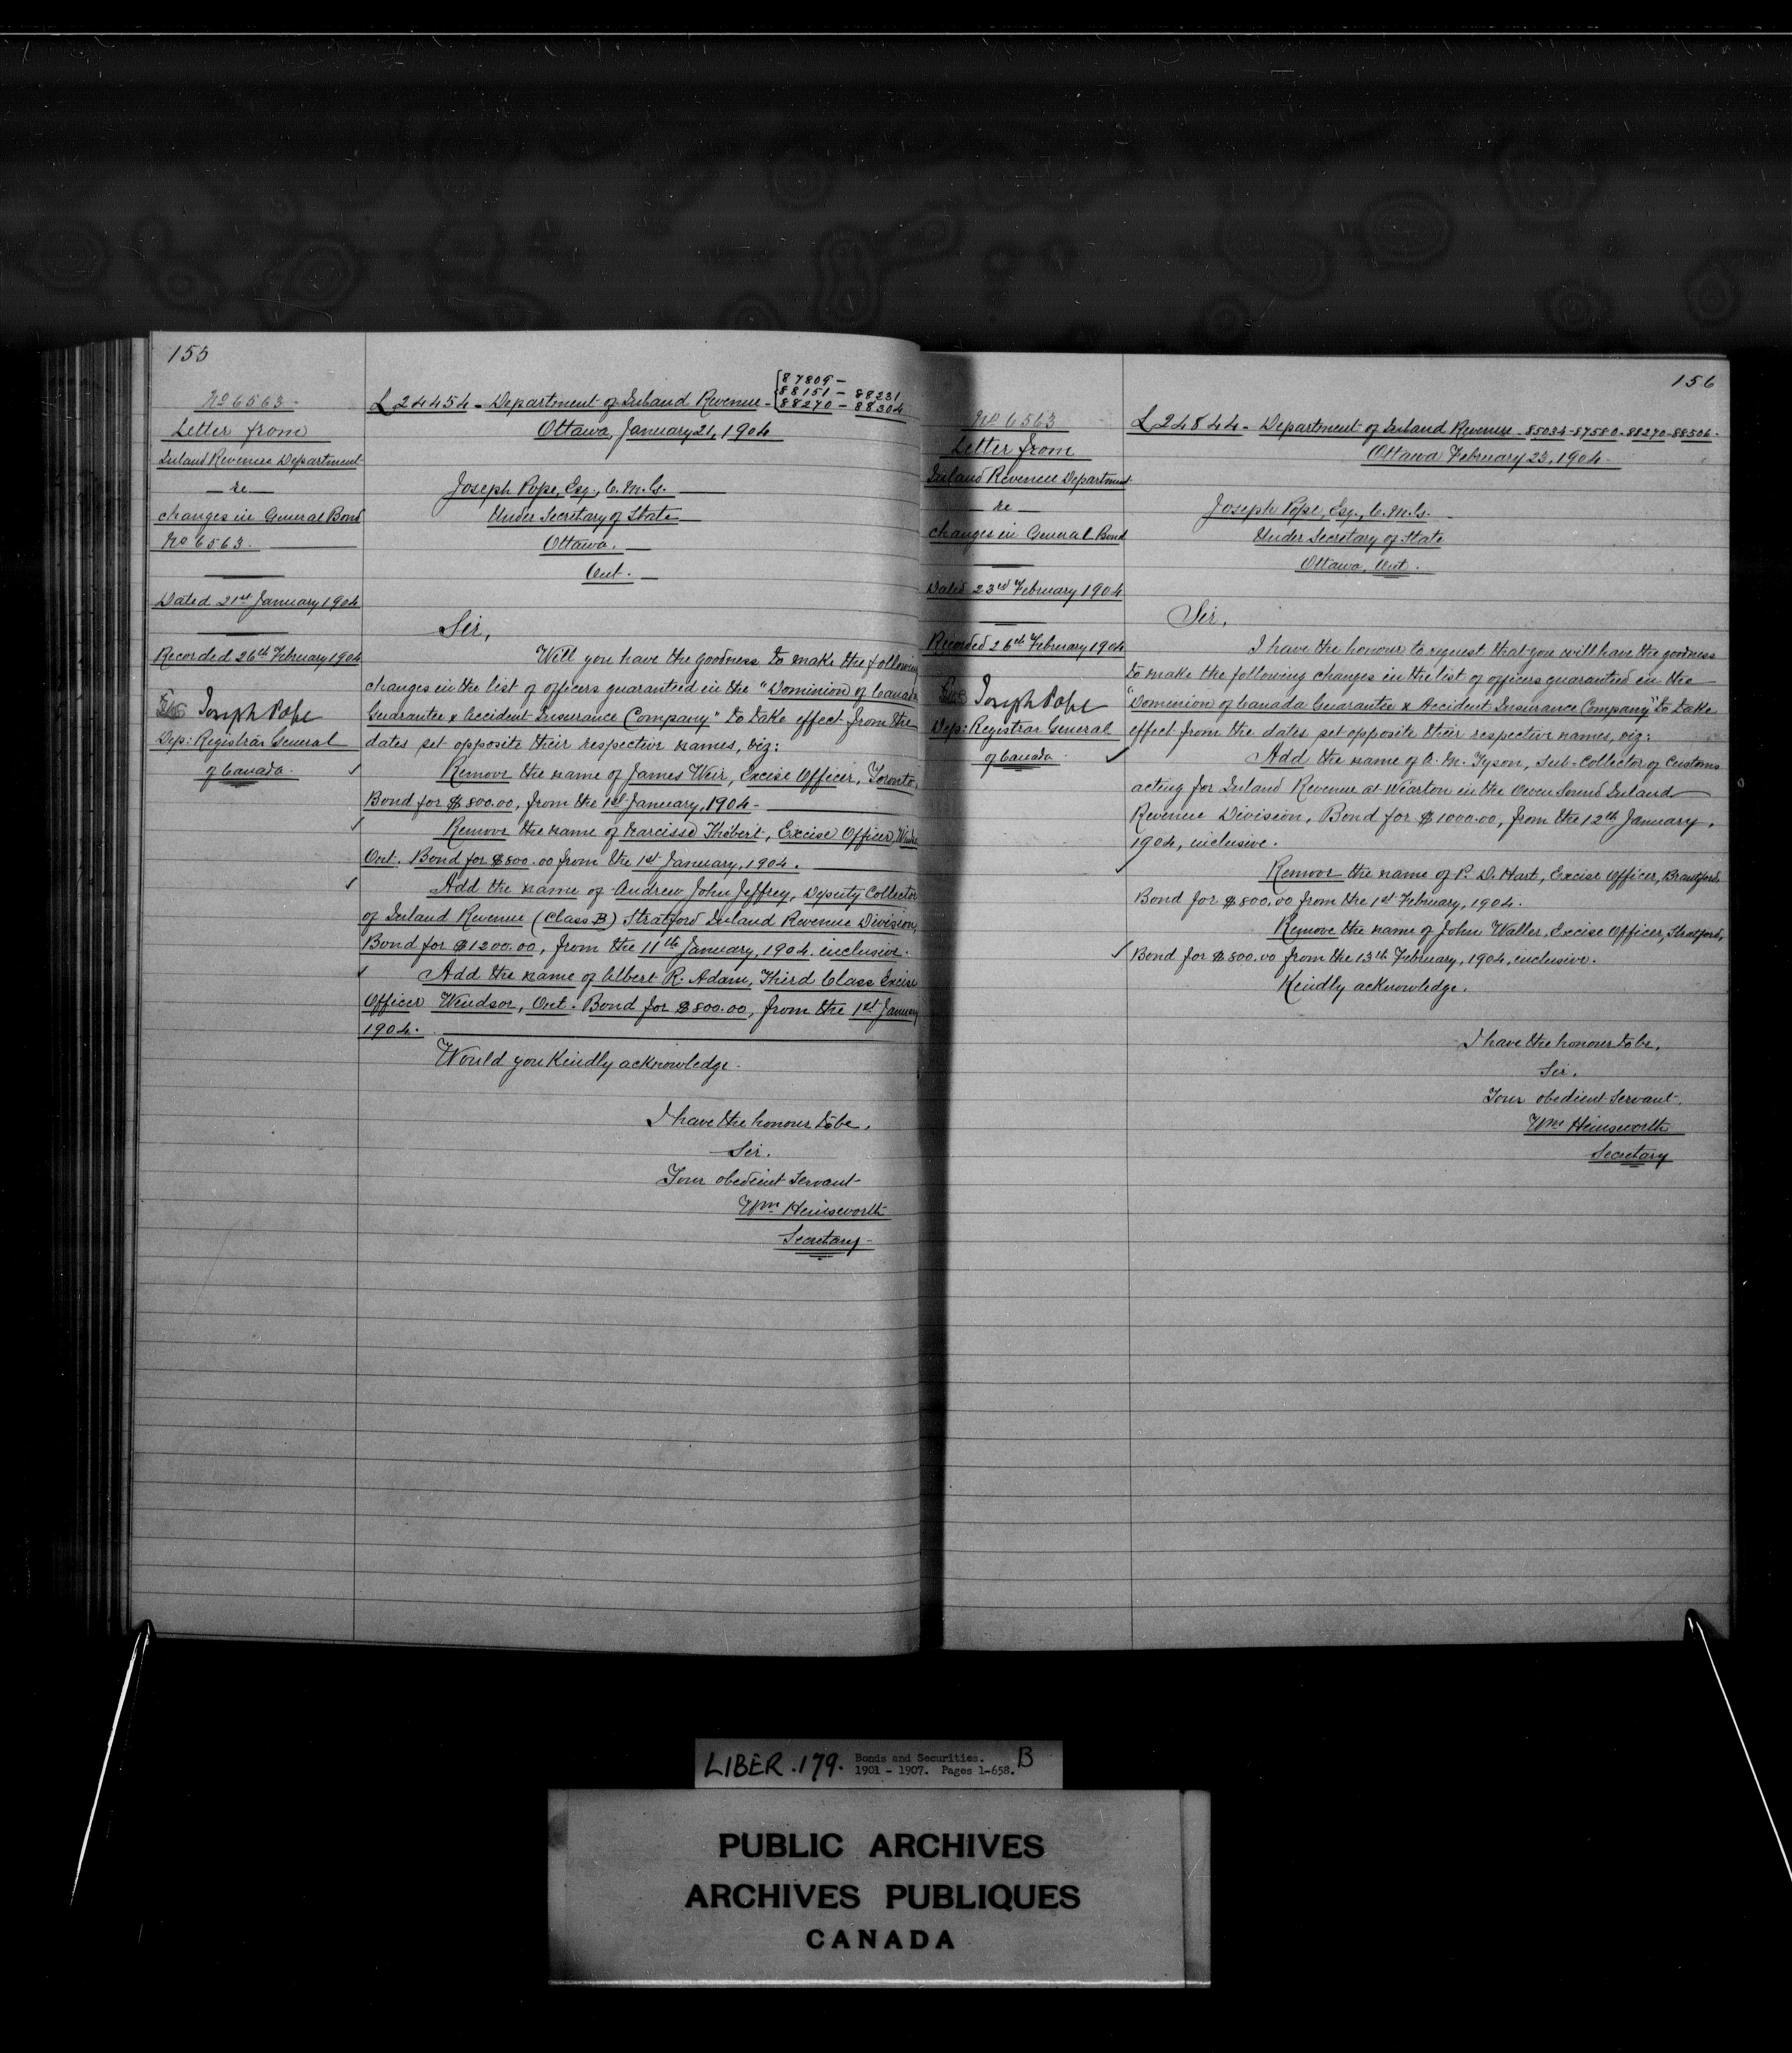 155
No 6563.
Letter from
Inland Revenue Department
re
changes in General Bond
No 6563.
Dated 21st January 1904
Recorded 26th February 1904
Joseph Pope
Dep: Registrar General
of Canada.
L 24454 - Department of Inland Revenue - {87809 -
88151 - 88231
88270 - 88304
Ottawa, January 21, 1904
Joseph Pope, Esq., C.M.G.
Under Secretary of State
Ottawa.
Ont.
Sir,
Will you have the goodness to make the following
changes in the list of officers guaranteed in the "Dominion of Canada
Guarantee & Accident Insurance Company" to take effect from the
dates set opposite their respective names, viz:
✓ Remove the name of James Weir, Excise Officer, Toronto,
Bond for $800.00, from the 1st January, 1904 -
✓ Remove the name of Narcisse Thébert, Excise Officer,
Ont. Bond for $800.00 from the 1st January, 1904.
✓ Add the name of Andrew John Jeffrey, Deputy Collector
of Inland Revenue (Class B) Stratford Inland Revenue Division,
Bond for $1200.00, from the 11th January, 1904, inclusive.
✓ Add the name of Albert R. Adam, Third Class Excise
Officer Windsor, Ont. Bond for $800.00, from the 1st January
1904.
Would you kindly acknowledge.
I have the honour to be,
Sir.
Your obedient Servant
Wm Heinsworth
Secretary
156
No 6563
Letter from
Inland Revenue Department
re
changes in General Bond
Dated 23rd February 1904
Recorded 26th February 1904
Joseph Pope
Dep: Registrar General
of Canada.
L 24844 - Department of Inland Revenue - 85034-87580-88270-88506.
Ottawa February 23, 1904.
Joseph Pope, Esq., C.M.G.
Under Secretary of State
Ottawa, Ont.
Sir,
I have the honour to request that you will have the goodness
to make the following changes in the list of officers guaranteed in the
"Dominion of Canada Guarantee & Accident Insurance Company" to take
effect from the dates set opposite their respective names, viz:
✓ Add the name of A. M. Tyson, Sub-Collector of Customs
acting for Inland Revenue at Wiarton in the Owen Sound Inland
Revenue Division, Bond for $1000.00, from the 12th January,
1904, inclusive.
✓ Remove the name of P. D. Hart, Excise Officer, Brantford,
Bond for $800.00 from the 1st February, 1904.
Remove the name of John Waller, Excise Officer, Stratford,
✓ Bond for $800.00 from the 13th February, 1904, inclusive.
Kindly acknowledge.
I have the honour to be,
Sir.
Your obedient Servant.
Wm Heinsworth
Secretary
LIBER .179. Bonds and Securities. B
1901 - 1907. Pages 1-658.
PUBLIC ARCHIVES
ARCHIVES PUBLIQUES
CANADA